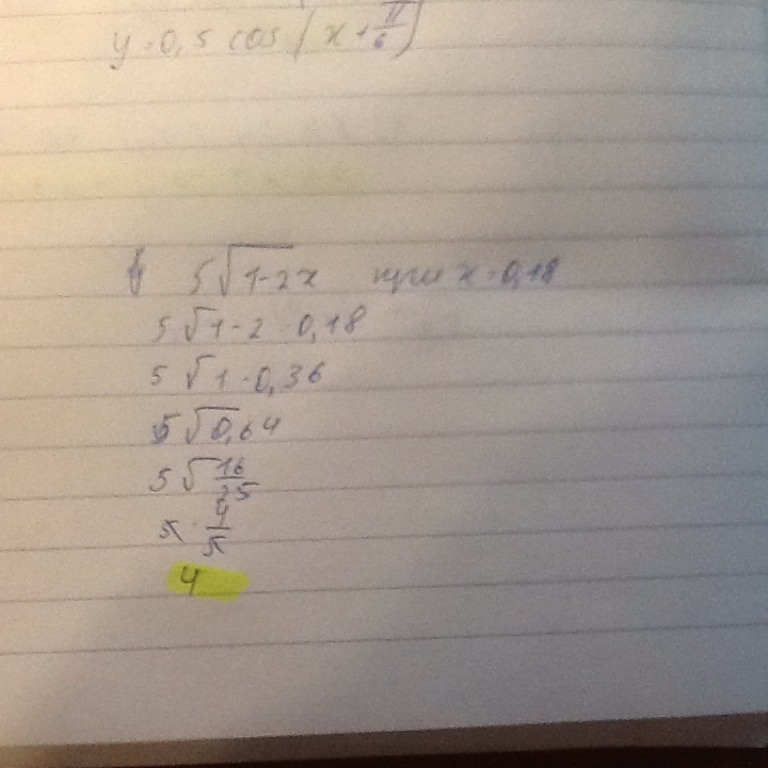 y = 0,5 cos (x + π/6)
5√1-2x при x = 0,18
5√1-2·0,18
5√1-0,36
5√0,64
5√16/25
5·4/5
4